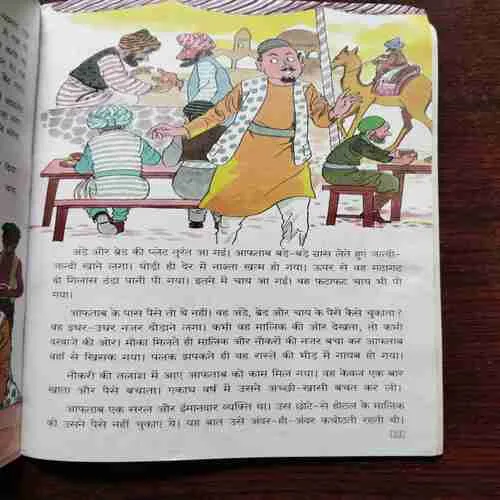 अंडे और ब्रेड की प्लेट तुरंत आ गई। आफताब बड़े-बड़े ग्रास लेते हुए जल्दी-
जल्दी खाने लगा। थोड़ी ही देर में नाश्ता खत्म हो गया। ऊपर से वह गटागट
दो गिलास ठंडा पानी पी गया। इतने में चाय आ गई। वह फटाफट चाय भी पी
गया।
आफताब के पास पैसे तो थे नहीं। वह अंडे, ब्रेड और चाय के पैसे कैसे चुकाता?
वह इधर-उधर नजर दौड़ाने लगा। कभी वह मालिक की ओर देखता, तो कभी
दरवाजे की ओर। मौका मिलते ही मालिक और नौकरों की नजर बचा कर आफताब
वहां से खिसक गया। पलक झपकते ही वह रास्ते की भीड़ में गायब हो गया।
नौकरी की तलाश में आए आफताब को काम मिल गया। वह केवल एक बार
खाता और पैसे बचाता। एकाध वर्ष में उसने अच्छी-खासी बचत कर ली।
आफताब एक सरल और ईमानदार व्यक्ति था। उस छोटे-से होटल के मालिक
को उसने पैसे नहीं चुकाए थे। यह बात उसे अंदर-ही-अंदर कचोटती रहती थी।